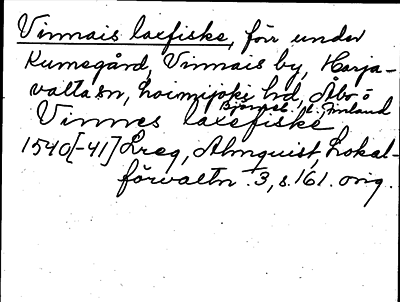 Vinnais laxfiske, förr under
Kumogård, Vinnais by, Harja-
valta sn, Loimijoki hd, Åbo o
Björneb. l. Finland
Vinnes laxefiske
1540[-41] Lreg, Almquist, Lokal-
förvaltn. 3, s. 161. orig.